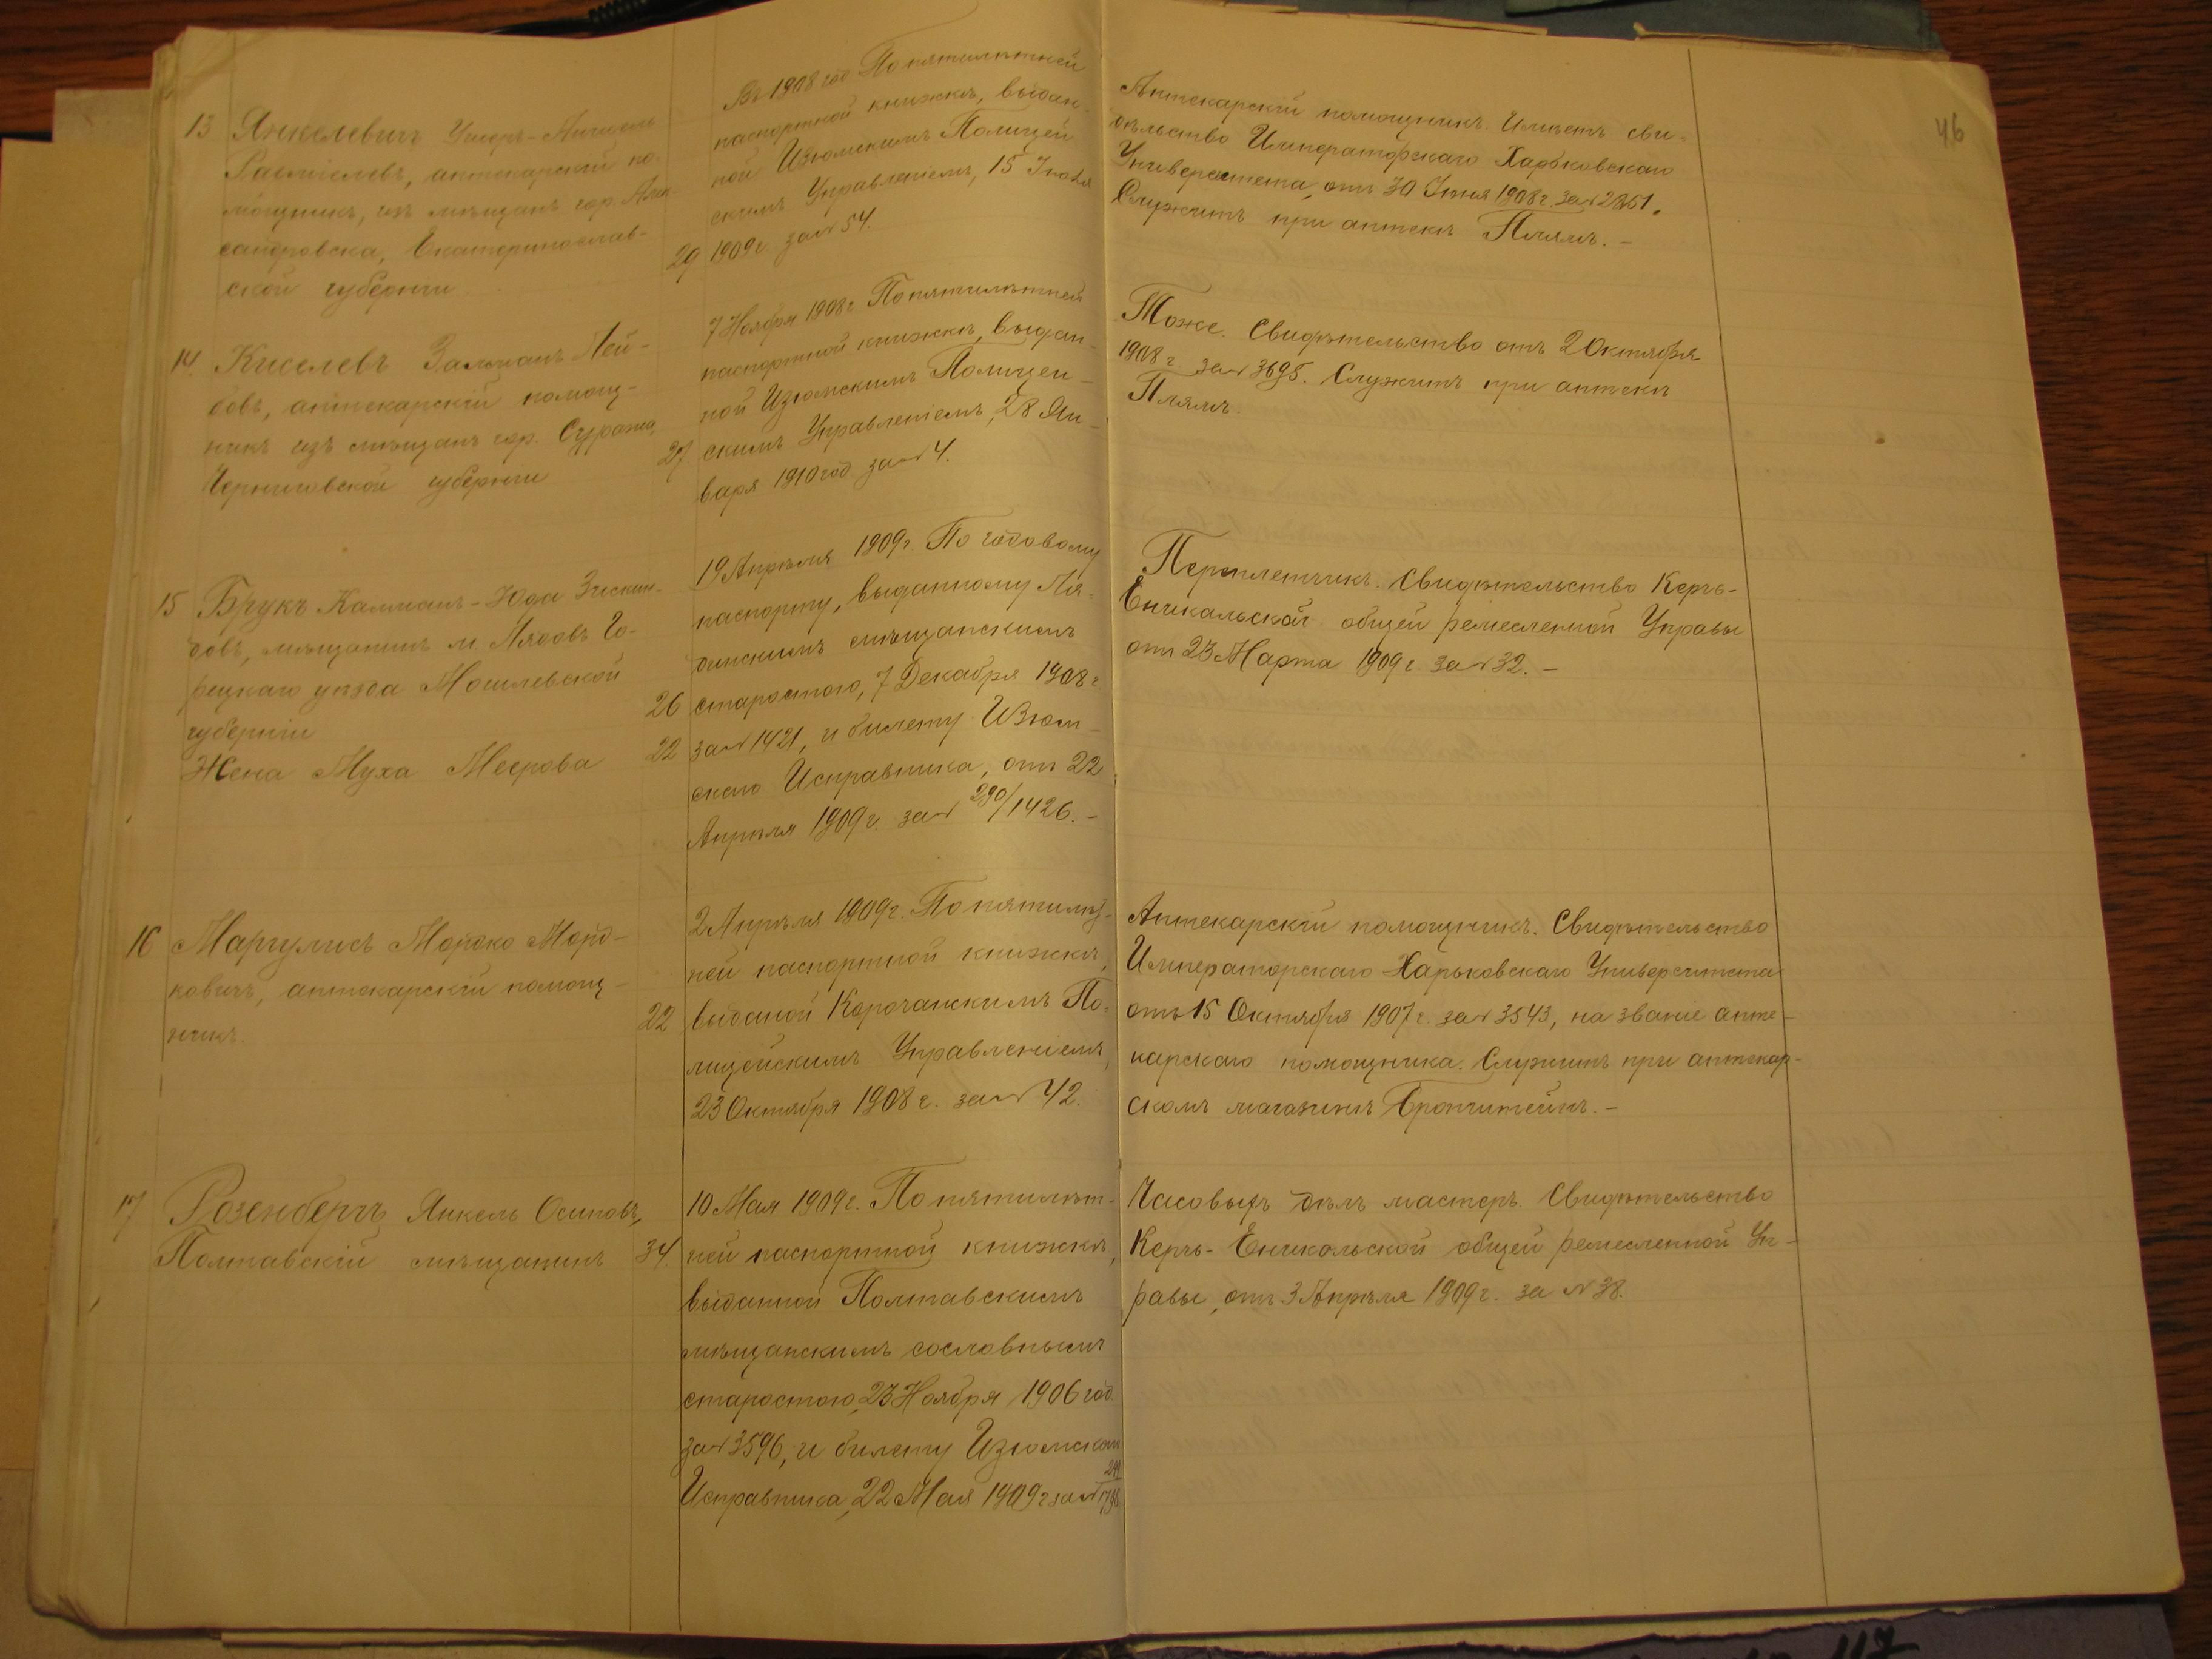 46
13 Янкелевичъ
Рафаиловъ, аптекарскій по-
мощникъ, изъ мѣщанъ гор. Алек
сандровска, Екатеринослав-
ской губерніи
29
Въ 1908 год По пятилѣтней
паспортной книжкѣ, выдан-
ной Изюмскимъ Полицей
скимъ Управленіемъ, 15 Іюля
1909 г. за № 54.
Аптекарскій помощникъ. Имѣетъ сви-
дѣтельство Императорскаго Харьковскаго
Университета, отъ 30 Іюня 1908 г. за № 2851.
Служитъ при аптекѣ Плямъ. —
14. Киселевъ Залманъ Лей-
бовъ, аптекарскій помощ-
никъ изъ мѣщанъ гор. Суража,
Черниговской губерніи
27
7 Ноября 1908 г. По пятилѣтней
паспортной книжкѣ, выдан-
ной Изюмскимъ Полицей-
скимъ Управленіемъ, 28 Ян-
варя 1910 год за № 4.
Тоже. Свидѣтельство отъ 2 Октября
1908 г. за № 3695. Служитъ при аптекѣ
Плямъ.
15 Брукъ Калманъ-Юда Зискин-
довъ, мѣщанинъ м. Лядовъ Го-
рецкаго уѣзда Могилевской
губерніи
Жена Муха Меерова
26
22
19 Апрѣля 1909 г. По годовому
паспорту, выданному Ля-
динскимъ мѣщанскимъ
старостою, 7 Декабря 1908 г.
за № 1421, и билету Изюм-
скаго Исправника, отъ 22
Апрѣля 1909 г. за № 290/1426. —
Переплетчикъ. Свидѣтельство Керчь-
Еникальской общей ремесленной Управы
отъ 23 Марта 1909 г. за № 32. —
16 Маргулисъ Морд-
ковичъ, аптекарскій помощ-
никъ.
22
2 Апрѣля 1909 г. По пятилѣт-
ней паспортной книжкѣ,
выданой Корочанскимъ По-
лицейскимъ Управленіемъ,
23 Октября 1908 г. за № 42.
Аптекарскій помощникъ. Свидѣтельство
Императорскаго Харьковскаго Университета
отъ 15 Октября 1907 г. за № 3543, на званіе апте-
карскаго помощника. Служитъ при аптекар-
скомъ магазинѣ Бронштейнъ. —
17 Розенбергъ Янкель Осиповъ,
Полтавскій мѣщанинъ
34.
10 Мая 1909 г. По пятилѣт-
ней паспортной книжкѣ,
выданной Полтавскимъ
мѣщанскимъ сословнымъ
старостою, 23 Ноября 1906 год.
за № 3596, и билету Изюмскаго
Исправника, 22 Мая 1909 г. за №
Часовыхъ дѣлъ мастеръ. Свидѣтельство
Керчь-Еникольской общей ремесленной Уп-
равы, отъ 3 Апрѣля 1909 г. за № 38.
117